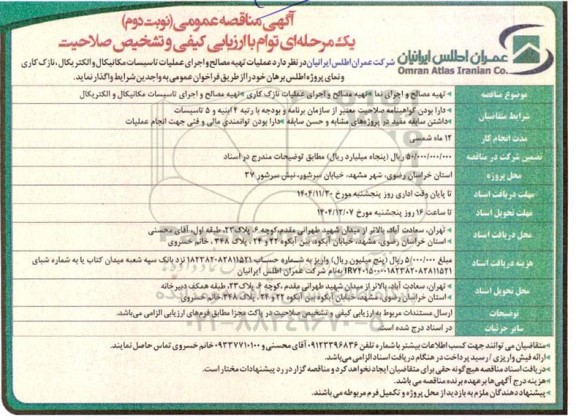 آگهی مناقصه عمومی (نوبت دوم)
یک مرحله‌ای توام با ارزیابی کیفی و تشخیص صلاحیت
عمران اطلس ایرانیان
Omran Atlas Iranian Co.
شرکت عمران اطلس ایرانیان در نظر دارد عملیات تهیه مصالح و اجرای عملیات تاسیسات مکانیکال و الکتریکال، نازک کاری
و نمای پروژه اطلس برهان خود را از طریق فراخوان عمومی به واجدین شرایط واگذار نماید.
موضوع مناقصه
تهیه مصالح و اجرای نما تهیه مصالح و اجرای عملیات نازک کاری تهیه مصالح و اجرای تاسیسات مکانیکال و الکتریکال
شرایط متقاضیان
دارا بودن گواهینامه صلاحیت معتبر از سازمان برنامه و بودجه با رتبه ۴ ابنیه و ۵ تاسیسات
داشتن سابقه مفید در پروژه‌های مشابه و حسن سابقه دارا بودن توانمندی مالی و فنی جهت انجام عملیات
مدت انجام کار
۱۴ ماه شمسی
تضمین شرکت در مناقصه
۵۰/۰۰۰/۰۰۰/۰۰۰ ریال (پنجاه میلیارد ریال) مطابق توضیحات مندرج در اسناد
محل پروژه
استان خراسان رضوی، شهر مشهد، خیابان سرشور، نبش سرشور ۳۷
مهلت دریافت اسناد
تا پایان وقت اداری روز پنجشنبه مورخ ۱۴۰۴/۱۱/۳۰
مهلت تحویل اسناد
تا ساعت ۱۶ روز پنجشنبه مورخ ۱۴۰۴/۱۲/۰۷
محل دریافت اسناد
تهران، سعادت آباد، بالاتر از میدان شهید طهرانی مقدم، کوچه ۶، پلاک ۲۳، طبقه اول، آقای محسنی
استان خراسان رضوی، مشهد، خیابان آبکوه، بین آبکوه ۲۲ و ۲۴، پلاک ۳۴۸، خانم خسروی
هزینه دریافت اسناد
مبلغ ۵/۰۰۰/۰۰۰ ریال (پنج میلیون ریال) واریز به شماره حساب ۱۸۲۳۸۲۰۸۲۸۱۱۵۲۱ نزد بانک سپه شعبه میدان کتاب یا به شماره شبای
به نام شرکت عمران اطلس ایرانیان
محل تحویل اسناد
تهران، سعادت آباد، بالاتر از میدان شهید طهرانی مقدم، کوچه ۶، پلاک ۲۳، طبقه همکف دبیرخانه
استان خراسان رضوی، مشهد، خیابان آبکوه بین آبکوه ۲۲ و ۲۴، پلاک ۳۴۸، خانم خسروی
توضیحات
ارسال مستندات مربوط به ارزیابی کیفی و تشخیص صلاحیت در پاکت مجزا مطابق فرم‌های ارزیابی الزامی می‌باشد.
سایر جزئیات
در اسناد درج شده است.
متقاضیان می توانند جهت کسب اطلاعات بیشتر با شماره تلفن ۰۹۱۲۳۳۹۶۸۳۶ آقای محسنی و ۰۹۳۳۷۷۱۰۱۰۰ خانم خسروی تماس حاصل نمایند.
ارائه فیش واریزی / رسید پرداخت در هنگام دریافت اسناد الزامی می‌باشد.
دریافت اسناد مناقصه هیچ گونه حقی برای متقاضیان ایجاد نخواهد کرد و مناقصه گزار در رد پیشنهادات مختار است.
هزینه درج آگهی‌ها بر عهده برنده مناقصه می باشد.
پیشنهاد دهندگان ملزم به بازدید از محل پروژه و تکمیل فرم مربوطه می باشند.